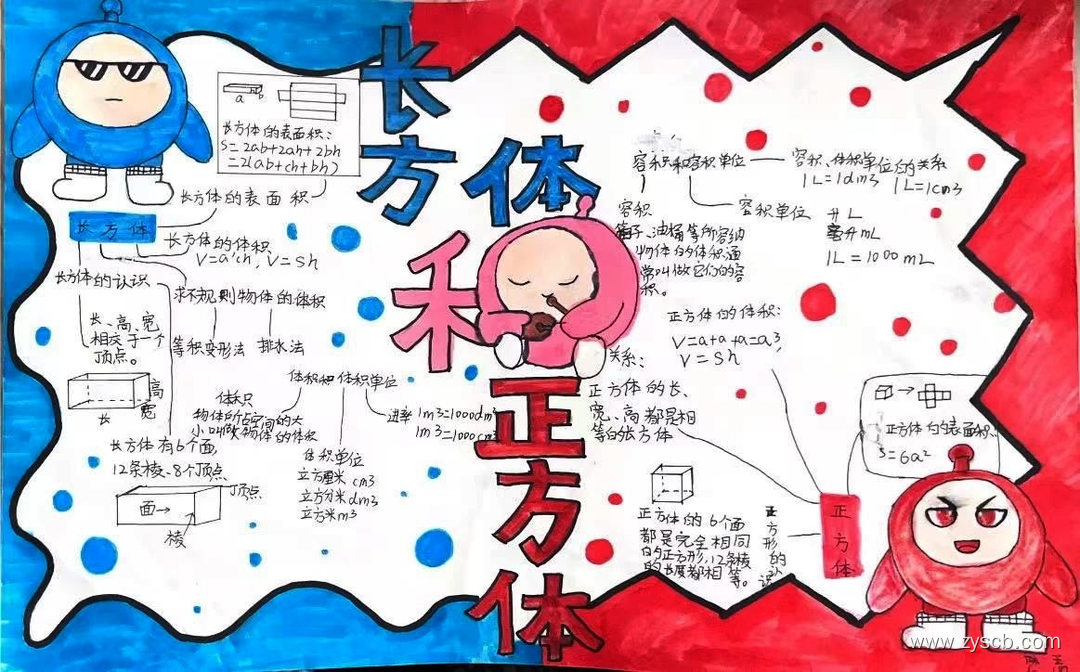 长方体和正方体
a b
长方体的表面积:
S=2ab+2ah+2bh
=2(ab+ch+bh)
长方体的表面积
长方体
长方体的体积
V=a'ch, V=sh
长方体的认识
求不规则物体的体积
等积变形法 排水法
长、高、宽
相交于一个
顶点。
高
宽
长
长方体有6个面,
12条棱、8个顶点
顶点
面→
棱
体积和体积单位
体积
物体所占空间的大
小叫做物体的体积
进率 1m3=1000dm3
1m3=1000cm3
体积单位
立方厘米 cm3
立方分米 dm3
立方米m3
容积和容积单位
容积、体积单位的关系
1L=1dm3 1L=1cm3
容积单位 升L
毫升mL
1L=1000mL
容积
箱子、油桶等所容纳
物体的体积通
常叫做它们的容
积。
正方体的体积:
V=a+a+a=a3,
V=Sh
关系:
正方体的长、
宽、高都是相
等的长方体
正方体的表面积:
S=6a2
正方体的6个面
都是完全相同
的正方形,12条棱
的长度都相等。
正方形的认识
正方体
www.zyscb.com